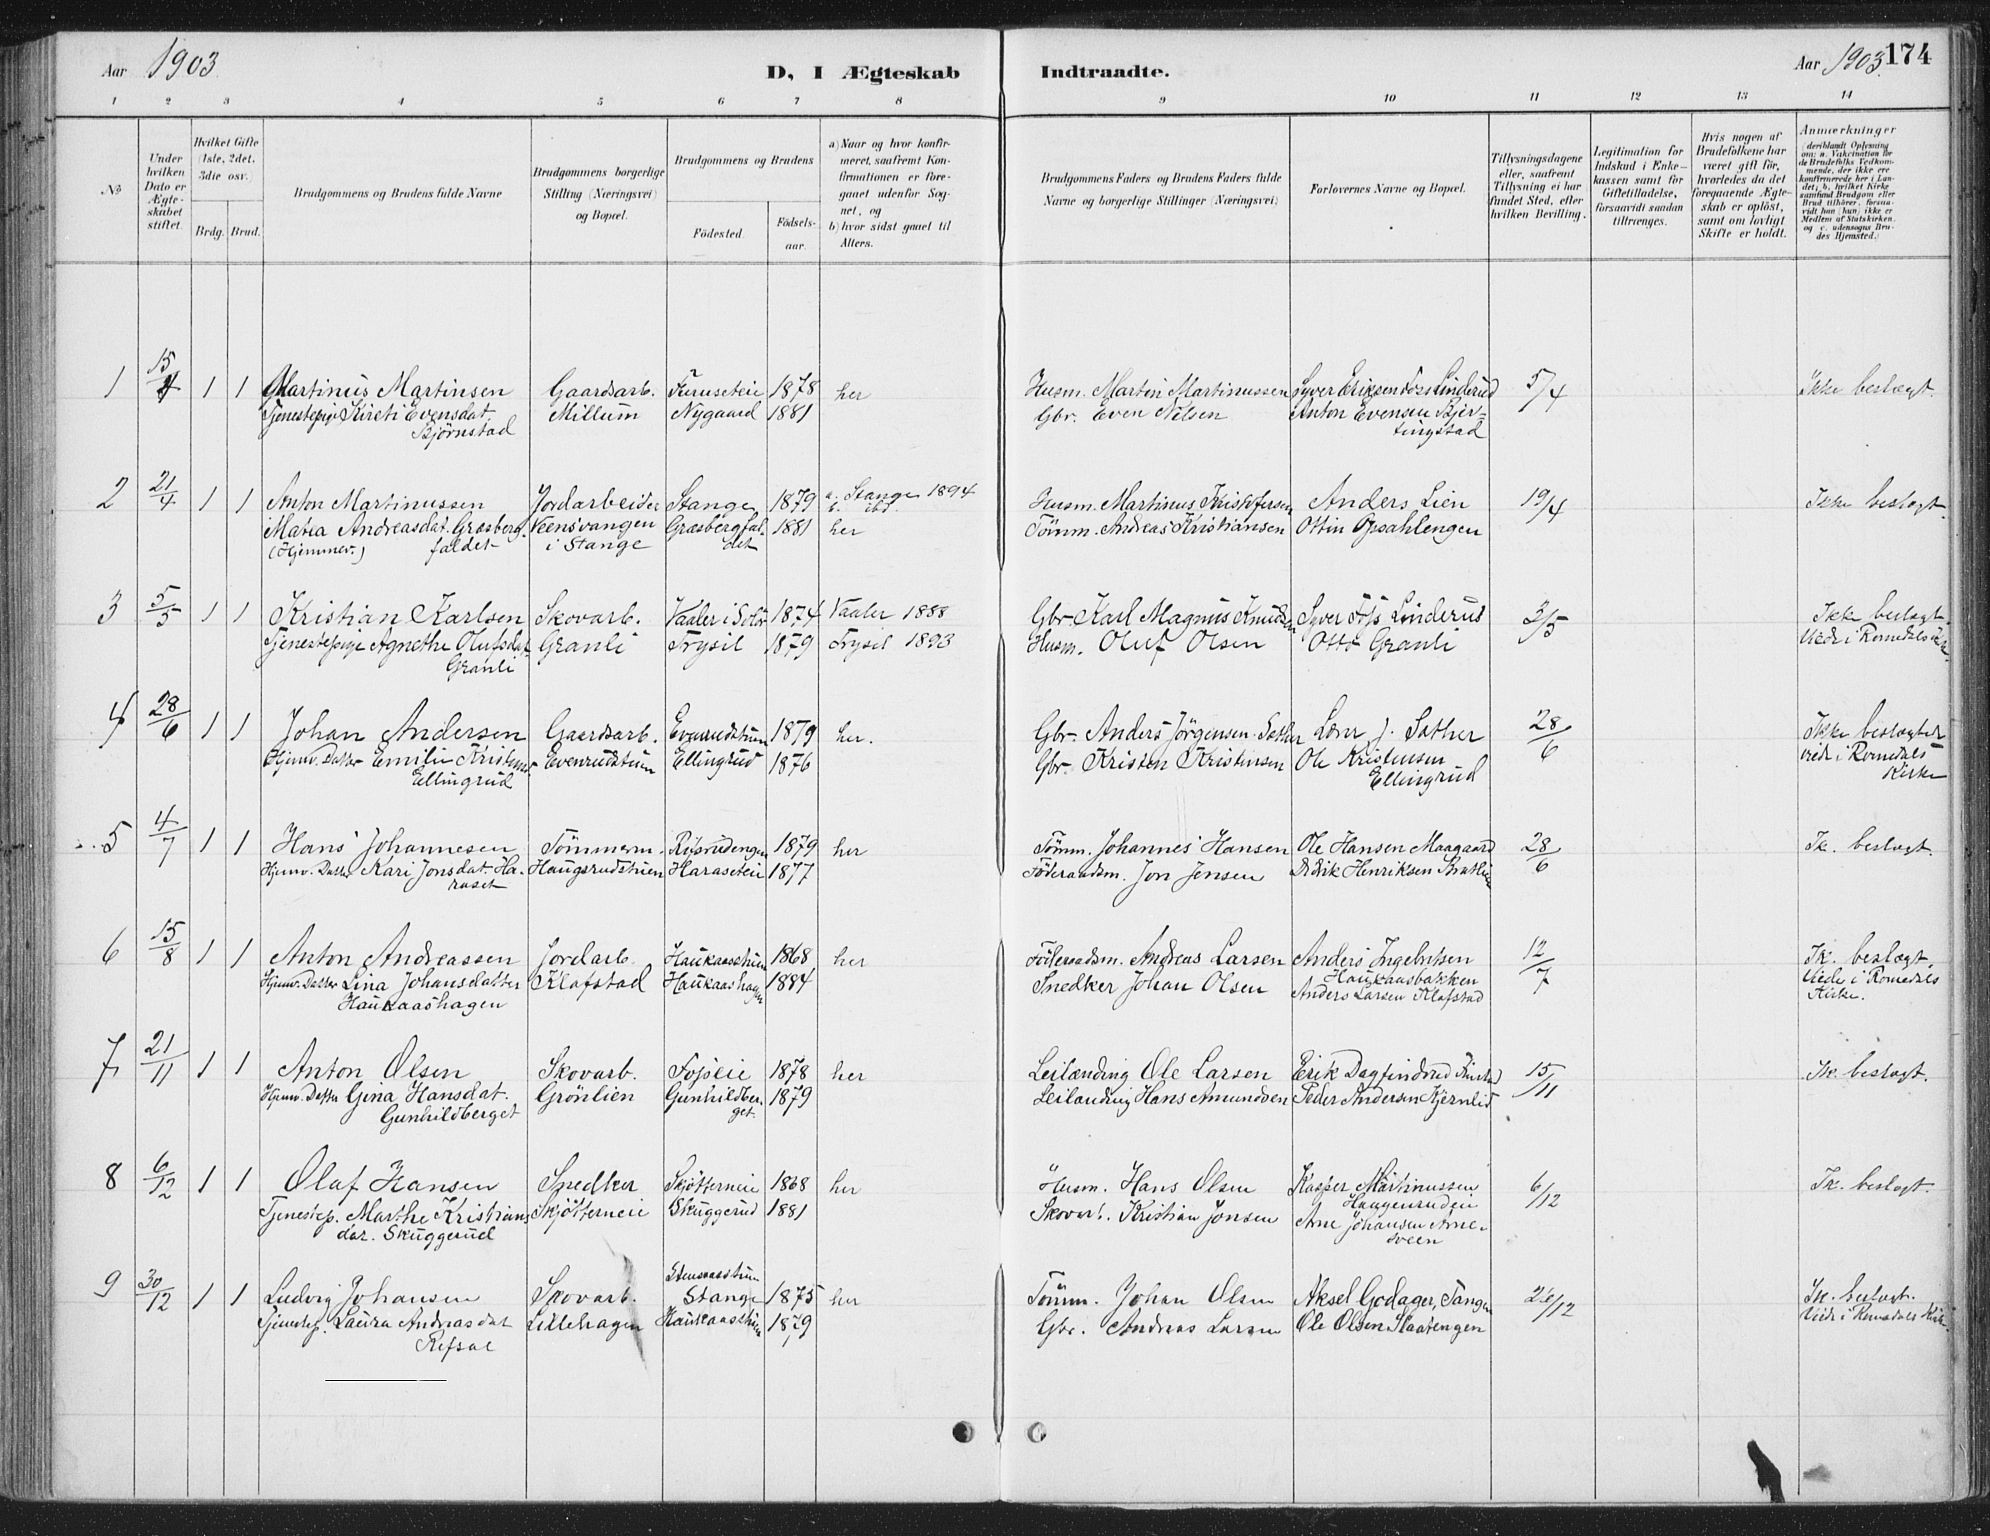 Aar 1903.
D, I Ægteskab
Indtraadte.
Aar 1903.
174
1 2 3 4 5 6 7 8 9 10 11 12 13 14
No
Under hvilken Dato er Ægteskabet stiftet.
Hvilket Gifte (1ste, 2det, 3die osv.
Brdg. Brud.
Brudgommens og Brudens fulde Navne
Brudgommens borgerlige Stilling (Næringsvei) og Bopæl.
Brudgommens og Brudens
Födested.
Födselsaar.
a) Naar og hvor konfirmeret, saafremt Konfirmationen er foregaaet udenfor Sognet, og
b) hvor sidst gaaet til Alters.
Brudgommens Faders og Brudens Faders fulde Navne og borgerlige Stillinger (Næringsvei)
Forlovernes Navne og Bopæl.
Tillysningsdagene eller, saafremt Tillysning ei har fundet Sted, efter hvilken Bevilling.
Legitimation for Indskud i Enkekassen samt for Giftetilladelse, forsaavidt saadan tiltrænges.
Hvis nogen af Brudefolkene har været gift för, hvorledes da det foregaaende Ægteskab er oplöst, samt om lovligt Skifte er holdt.
Anmærkninger
(deriblandt Oplysning om: a. Vakcination for de Brudefolks Vedkommende, der ikke ere konfirmerede her i Landet; b. hvilket Kirkesamfund Brudgom eller Brud tilhörer, forsaavidt han (hun) ikke er Medlem af Statskirken, og c. udensogns Brudes Hjemsted.)
1 15/4 1 1 Martinus Martinsen Gaardsarb. Furuseteie 1878 her Husm. Martin Martinussen Syver Eriksen Fos Linderud 5/4 Ikke beslægt.
Tjenestepige Kireti Evensdat. Millum Nygaard 1881 Gbr. Even Nilsen Anton Evensen Bjer-
Björnstad tingstad
2 21/4 1 1 Anton Martinussen Jordarbeider Stange 1879 a. Stange 1894 Husm. Martinus Kristofersen Anders Lien 19/4 Ikke beslægt.
b. ibd.
Maria Andreasdat. Græsberg- Græsbergfal- 1881 her Tömm. Andreas Kristiansen Ottin Opsahlengen
(Hjemmev.) faldet i Stange det
3 5/5 1 1 Kristian Karlsen Skovarb. Vaaler i Solör 1874 Vaaler 1888 Gbr. Karl Magnus Knudsen Syver Fos Linderud 3/5 Ikke beslægt.
Tjenestepige Agnethe Olufsdat. Granli Trysil 1879 Trysil 1893 Husm. Oluf Olsen Otto Granli Viede i Romedals
Granli
4 28/6 1 1 Johan Andersen Gaardsarb. Evenrudstuen 1879 her. Gbr. Anders Jörgensen Sæther J. Sæther 28/6 Ikke beslægtet
Hjemv. Datter Emilie Kristens- Evenrudstuen Ellingrud 1876 Gbr. Kristen Kristensen Ole Kristensen viede i Romedals
Ellingrud Ellingrud Kirke
5 4/7 1 1 Hans Johannesen Tömmerm. 1879 her Tömm. Johannes Hansen Ole Hansen Maagaard 28/6 Ik. beslægt.
Hjemv. Datter Kari Jonsdat. Ha- Haugsrudstuen Haraseteie 1877 Föderaadsm. Jon Jensen Didrik Henriksen Brathie
raset
6 15/8 1 1 Anton Andreassen Jordarb. Haukaasstuen 1868 her Föderaadsm. Andreas Larsen Anders Ingebritsen 12/7 Ik. beslægt,
Haukaasbakken
Hjemv. Datter Lina Johansdatter Klafstad Haukaashagen 1884 Snedker Johan Olsen Anders Larsen Klafstad Viede i Romedals
Haukaashagen Kirke.
7 21/11 1 1 Anton Olsen Skovarb. Foseie 1878 her Leilænding Ole Larsen Erik Dagfindrud 15/11 Ik. beslægt.
Hjemv. Datter Gina Hansdat. Grönlien Gunhildber- 1879 Leilænding Hans Amundsen Peder Andersen Kjernlid
Gunhildberget get.
8 6/12 1 1 Olaf Hansen Snedker Skjötterneie 1868 her Husm. Hans Olsen Kasper Martinussen 6/12 Ik. beslægt.
Haagenrudeie
Tjenestep. Marthe Kristians- Skjötterneie Skuggerud 1881 Skovarb. Kristian Jonsen Arne Johansen Arne-
dat. Skuggerud sveen
9 30/12 1 1 Ludvig Johansen Skovarb. Stange 1875 her Tömm. Johan Olsen Aksel Godager, Tangen 26/12 Ik. beslægt.
Tjenestep. Laura Andreasdat Lillehagen Haukaasstuen 1879 Gbr. Andreas Larsen Ole Olsen Slaatengen Viede i Romedals Kirke.
Refsal